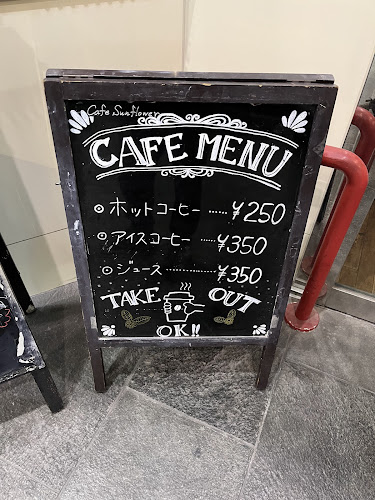 Cafe Sunflower
CAFE MENU
◎ ホットコーヒー ...... ¥250
◎ アイスコーヒー ...... ¥350
◎ ジュース ............... ¥350
TAKE OUT
OK!!